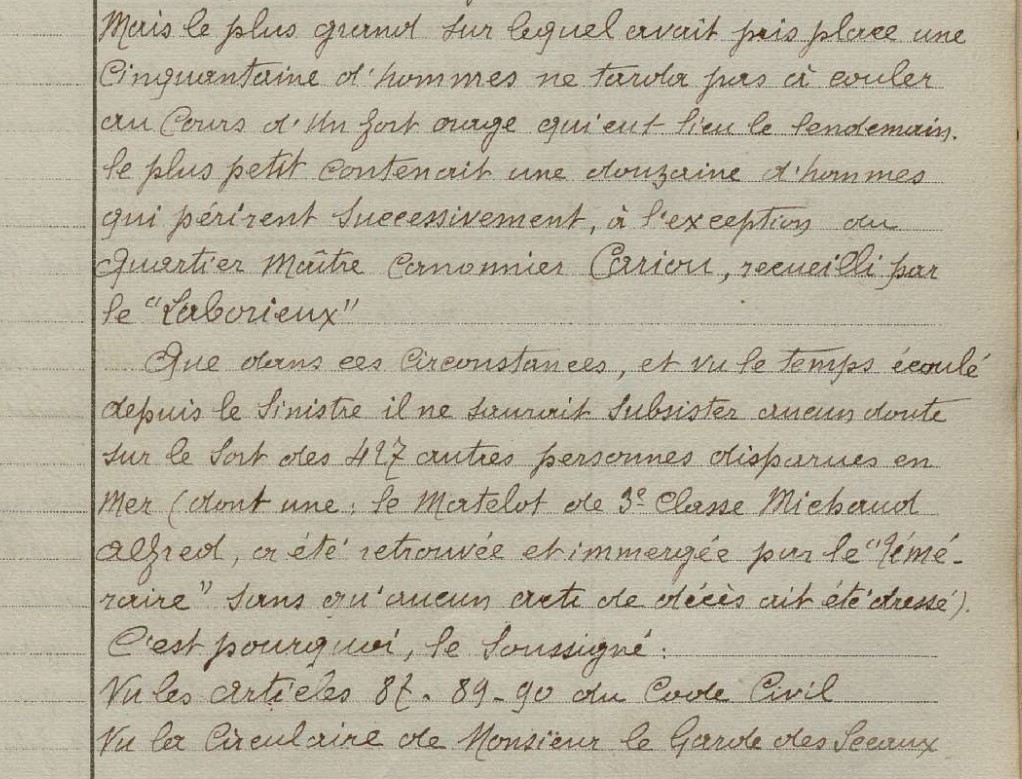 Mais le plus grand sur lequel avait pris place une
Cinquantaine d'hommes ne tarda pas à couler
au Cours d'un fort orage qui eut lieu le lendemain.
le plus petit Contenait une douzaine d'hommes
qui périrent Successivement, à l'exception du
Quartier Maître Canonnier Cariou, recueilli par
le "Laborieux"
Que dans ces Circonstances, et vu le temps écoulé
depuis le Sinistre il ne saurait Subsister aucun doute
sur le Sort des 427 autres personnes disparues en
Mer (dont une, le Matelot de 3e Classe Michaud
Alfred, a été retrouvée et immergée par le "Témé-
raire" sans qu'aucun acte de décès ait été dressé).
C'est pourquoi, le Soussigné :
Vu les articles 87 - 89 - 90 du Code Civil
Vu la Circulaire de Monsieur le Garde des Sceaux